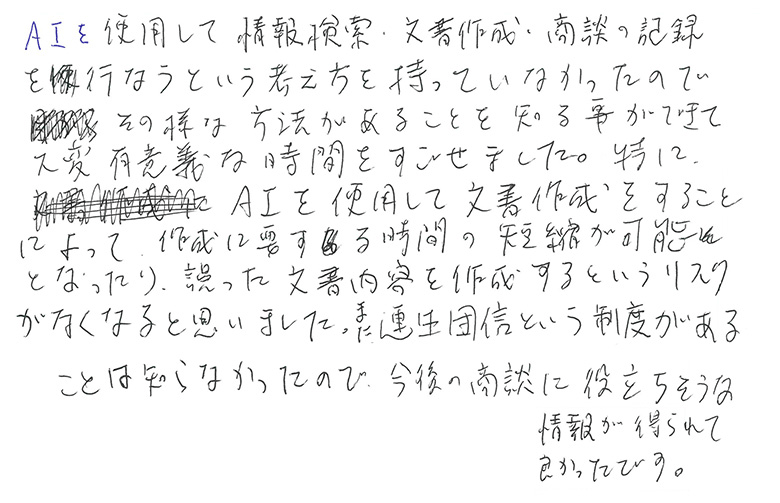 AIを使用して情報検索・文書作成・商談の記録
を行なうという考え方を持っていなかったので
その様な方法があることを知る事ができて
大変有意義な時間をすごせました。特に、
AIを使用して文書作成をすること
によって、作成に要する時間の短縮が可能
となったり、誤った文書内容を作成するというリスク
がなくなると思いました。また連生団信という制度がある
ことは知らなかったので、今後の商談に役立ちそうな
情報が得られて
良かったです。